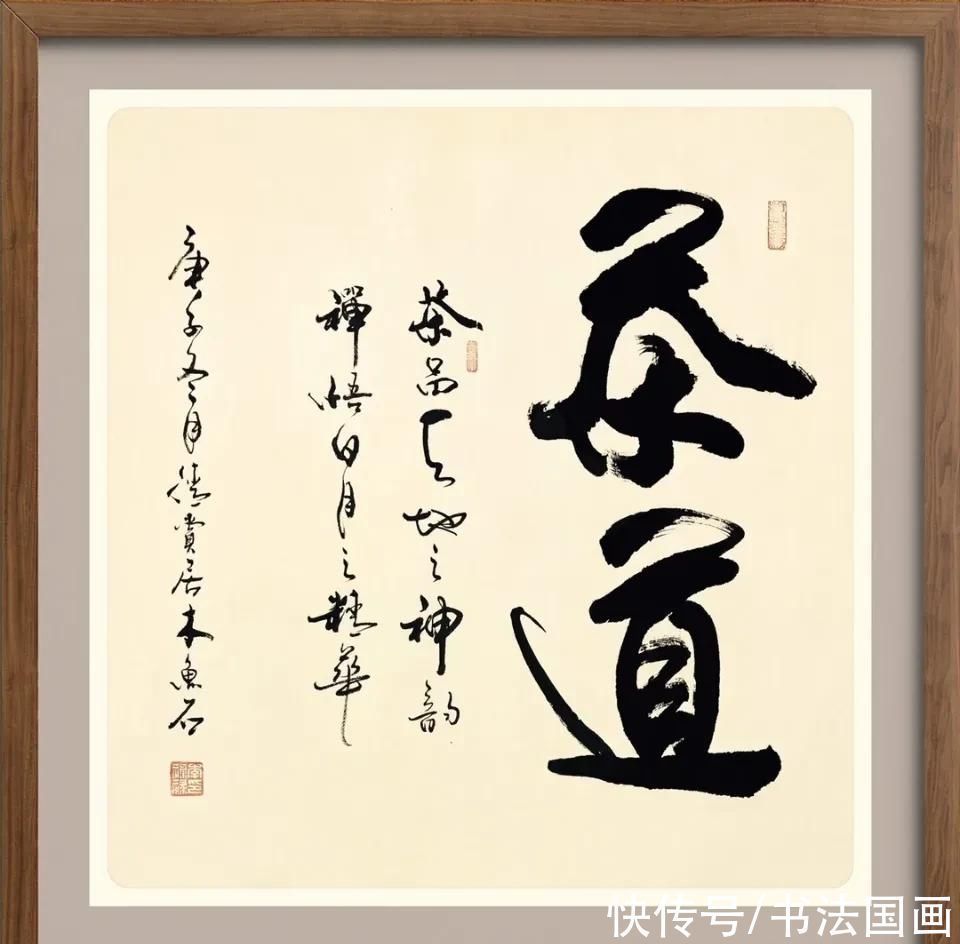 茶道
茶品天地之神韵
禪悟日月之精華
庚子冬月德賞居木魚石
快传号/书法国画